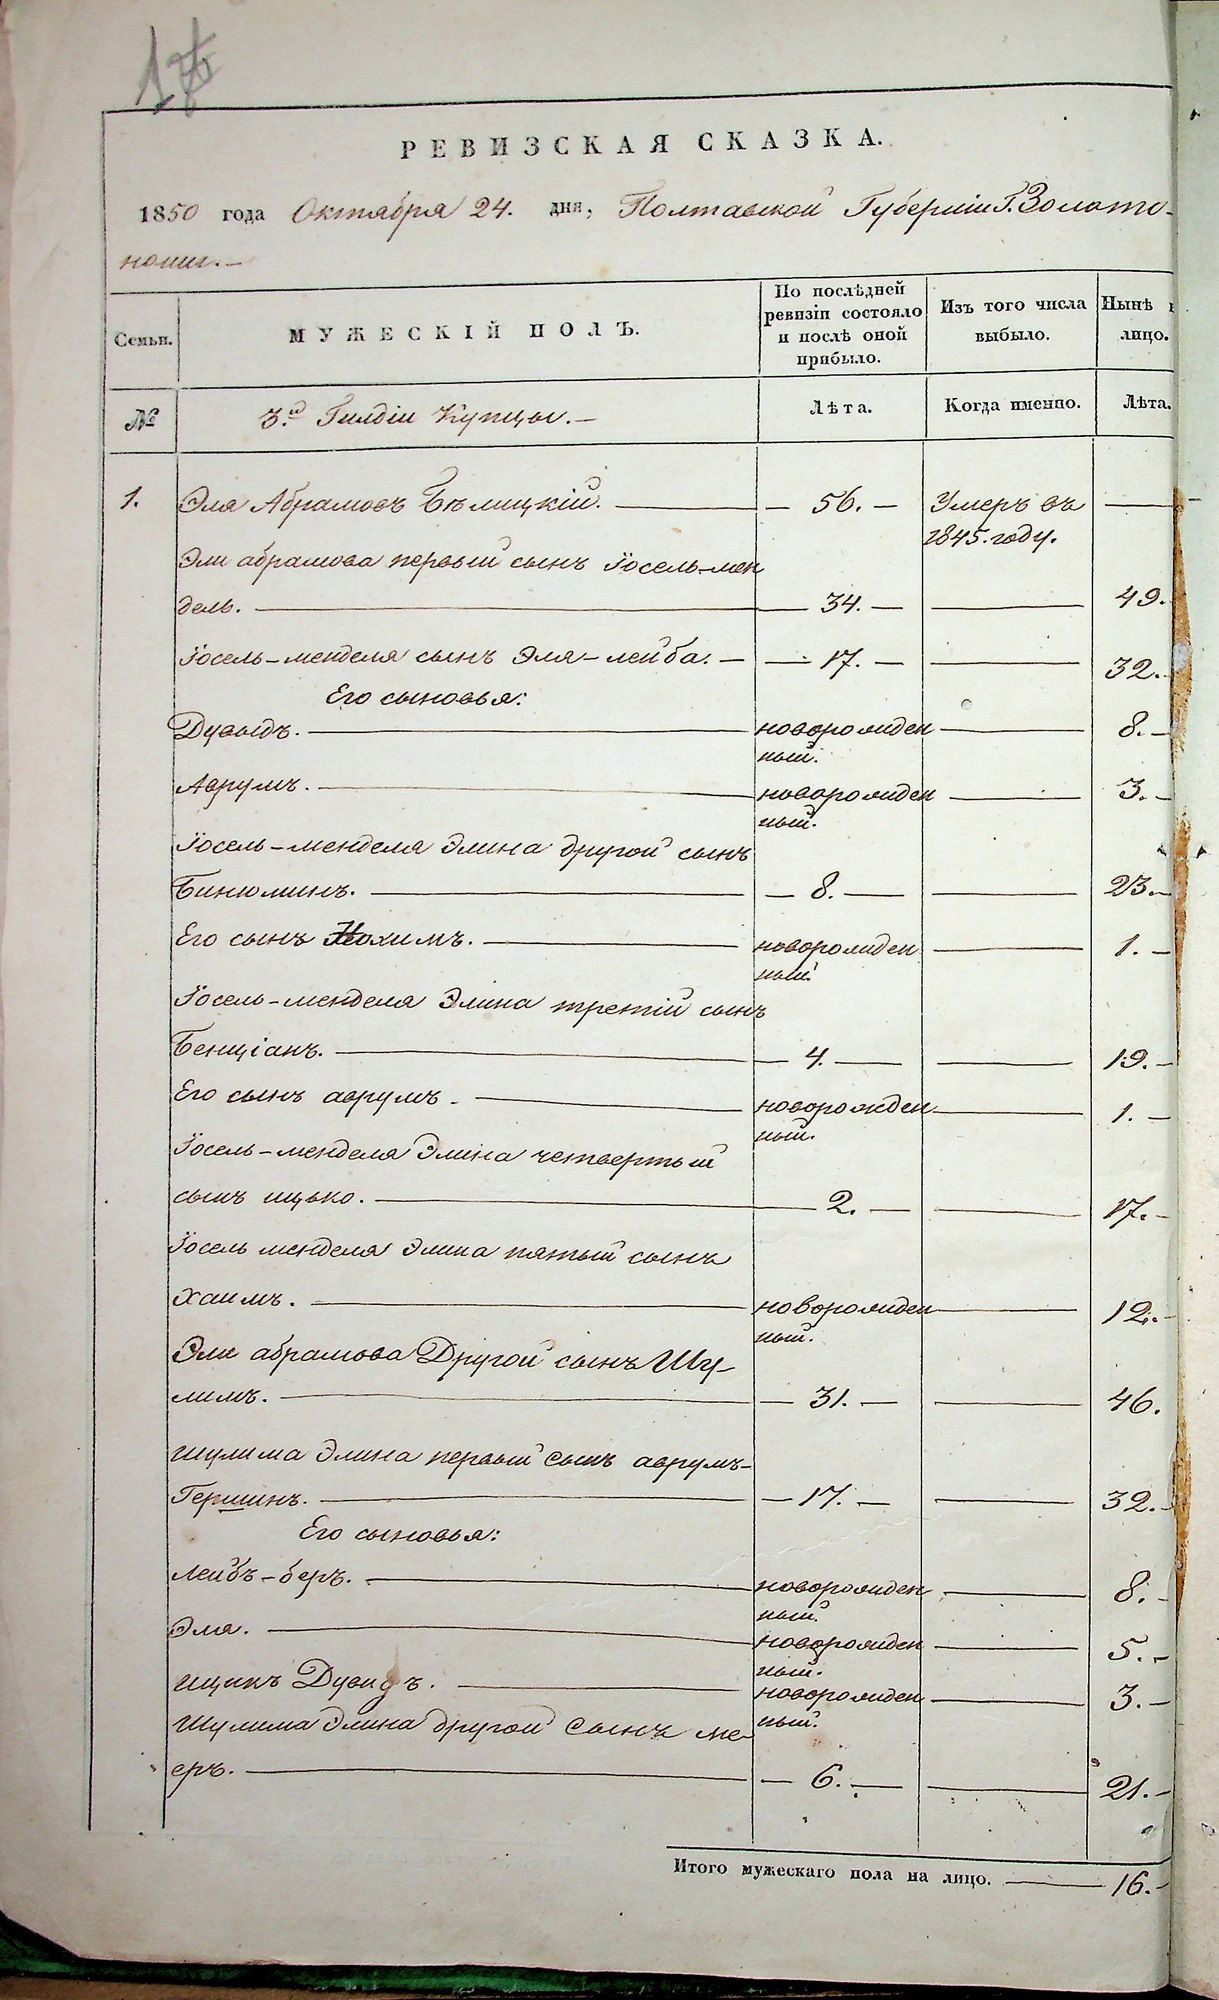 РЕВИЗСКАЯ СКАЗКА.
1850 года Октября 24. дня, Полтавской Губерніи Г. Золото-
ноши.—
Семьи.
МУЖЕСКІЙ ПОЛЪ.
По послѣдней ревизіи состояло и послѣ оной прибыло.
Изъ того числа выбыло.
Нынѣ
лицо.
№ 3.й Гильдіи Купцы.— Лѣта. Когда именно. Лѣта.
1. Эля Абрамовъ Бѣлицкій. — 56. — Умеръ въ —
1845. году.
Эли абрамова первый сынъ Іосель-мен
дель. — 34. — — 49.
Іосель-менделя сынъ Эля-лейба. — — 17. — — 32.—
Его сыновья:
Дувыдъ. — новорожден — 8.—
ный.
Аврумъ. — новорожден — 3.—
ный.
Іосель-менделя Элина другой сынъ
Бинюминъ. — 8. — — 23.—
Его сынъ Нохимъ. — новорожден — 1.—
ный.
Іосель-менделя Элина третій сынъ
Бенціанъ. — 4. — — 19.—
Его сынъ аврумъ. — новорожден — 1.—
ный.
Іосель-менделя Элина четвертый
сынъ ицько. — 2. — — 17.—
Іосель менделя Элина пятый сынъ
хаимъ. — новорожден — 12.—
ный.
Эли абрамова Другой сынъ Шу-
лимъ. — 31. — — 46.
шулима Элина первый сынъ аврумъ-
Гершинъ. — 17. — — 32.
Его сыновья:
лейбъ-беръ. — новорожден — 8.—
ный.
Эля. — новорожден — 5.—
ный.
ицикъ Дувидъ. — новорожден — 3.—
Шулима Элина другой сынъ ме ный.
еръ. — 6. — — 21.—
Итого мужескаго пола на лицо. — 16.—